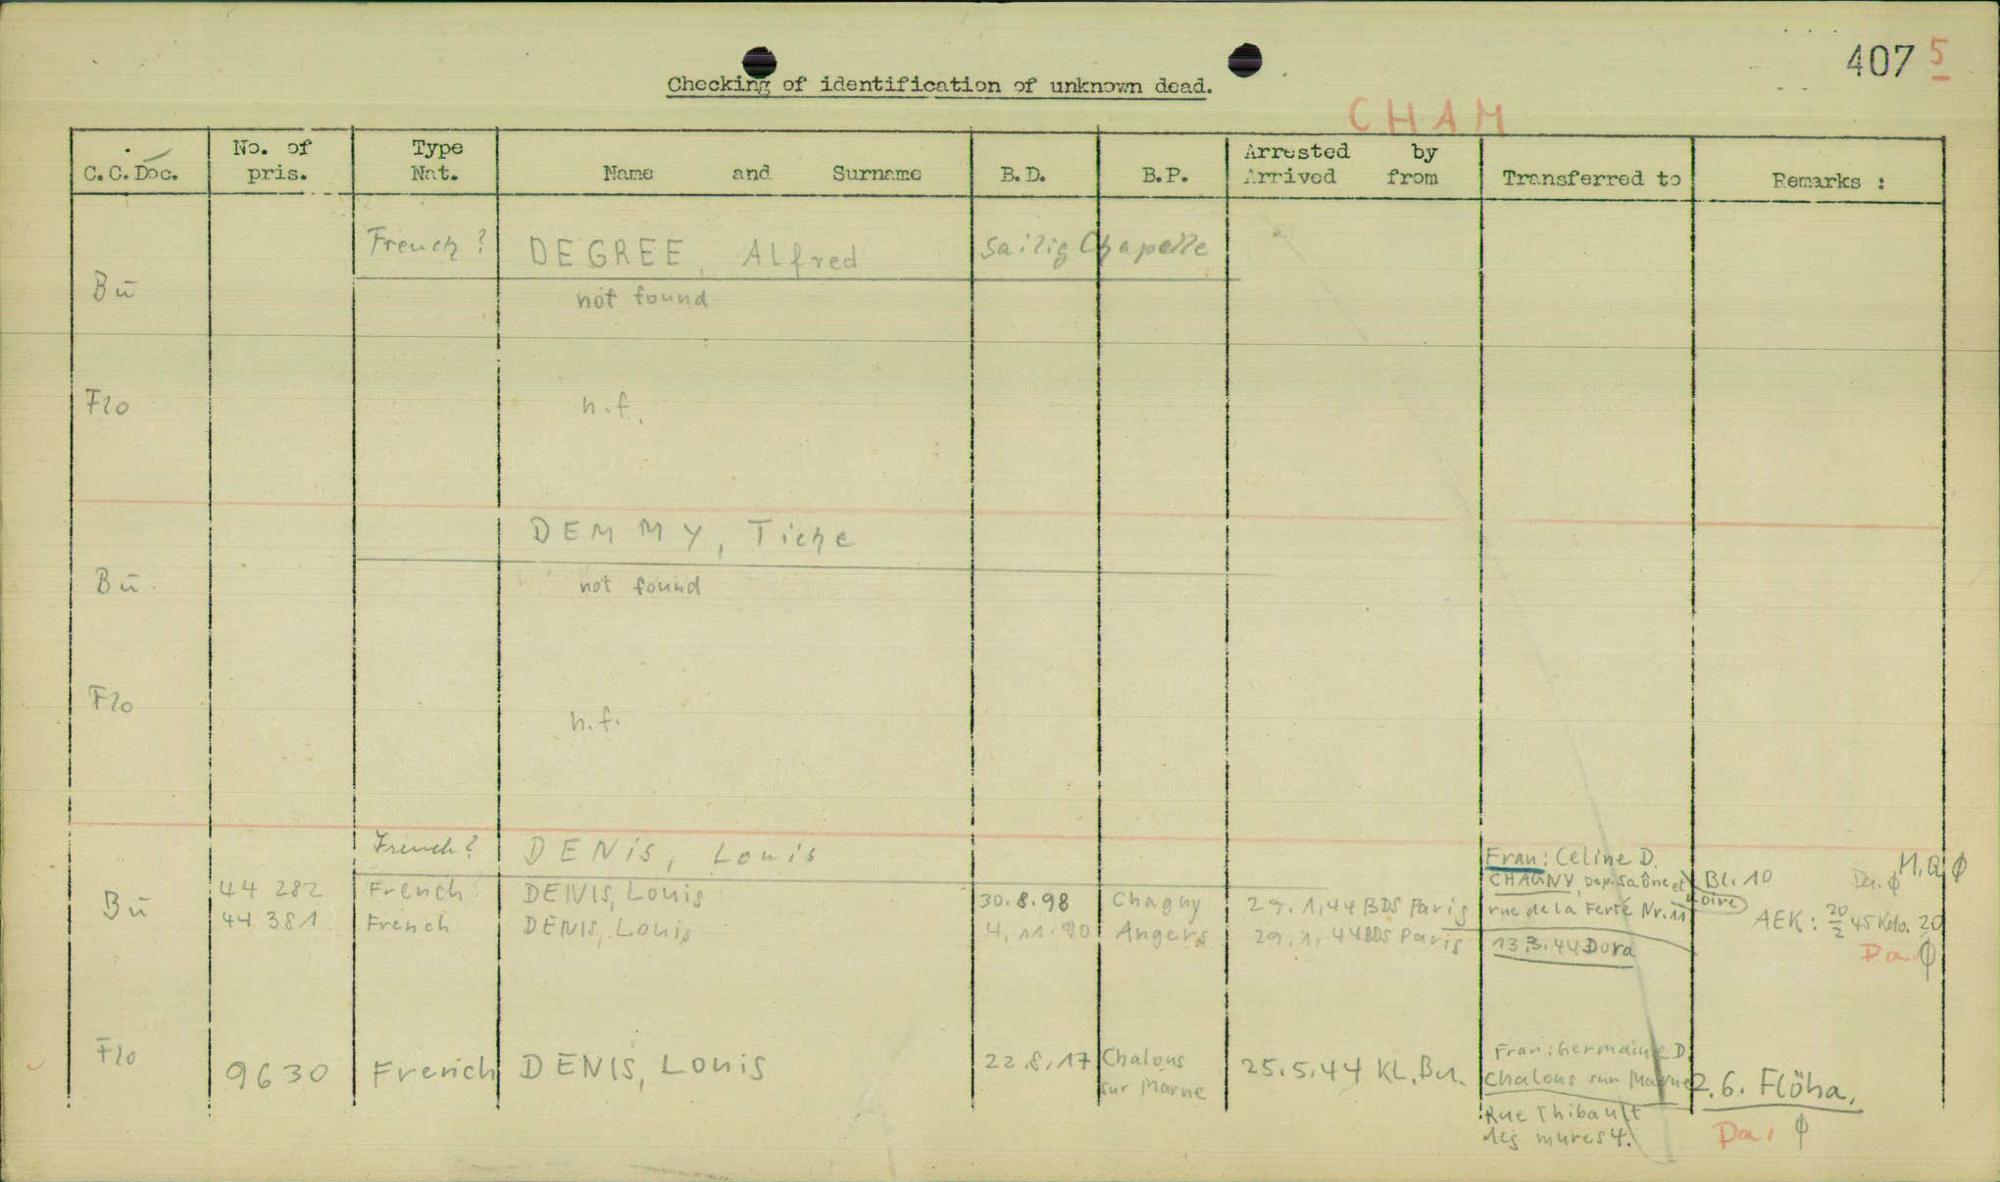 407 5
Checking of identification of unknown dead.
CHAM
C.C.Doc.
No. of pris.
Type Nat.
Name and Surname
B.D.
B.P.
Arrested by
Arrived from
Transferred to
Remarks :
French? DEGREE, Alfred Sailig Chapelle
Bū not found
Flo n.f.
DEMMY, Tiche
Bū. not found
Flo n.f.
French? DENIS, Louis
Bū 44 282 French DENIS, Louis 30.8.98 Chagny 29.1.44 BDS Paris
44 381 French DENIS, Louis 4.11.90 Angers 29.1.44 BDS Paris
Frau: Celine D.
CHAGNY, Dep. Saône et Loire
rue de la Ferté Nr. 11
13.3.44 Dora
Bl. 10
AEK: 20/2 45 Kdo. 20
Da. ϕ
Flo 9630 French DENIS, Louis 22.8.17 Chalons sur Marne 25.5.44 KL. Bu.
Frau: Germaine D
Chalons sur Marne
Rue Thibault
des mures 4.
2.6. Flöha,
Da. ϕ